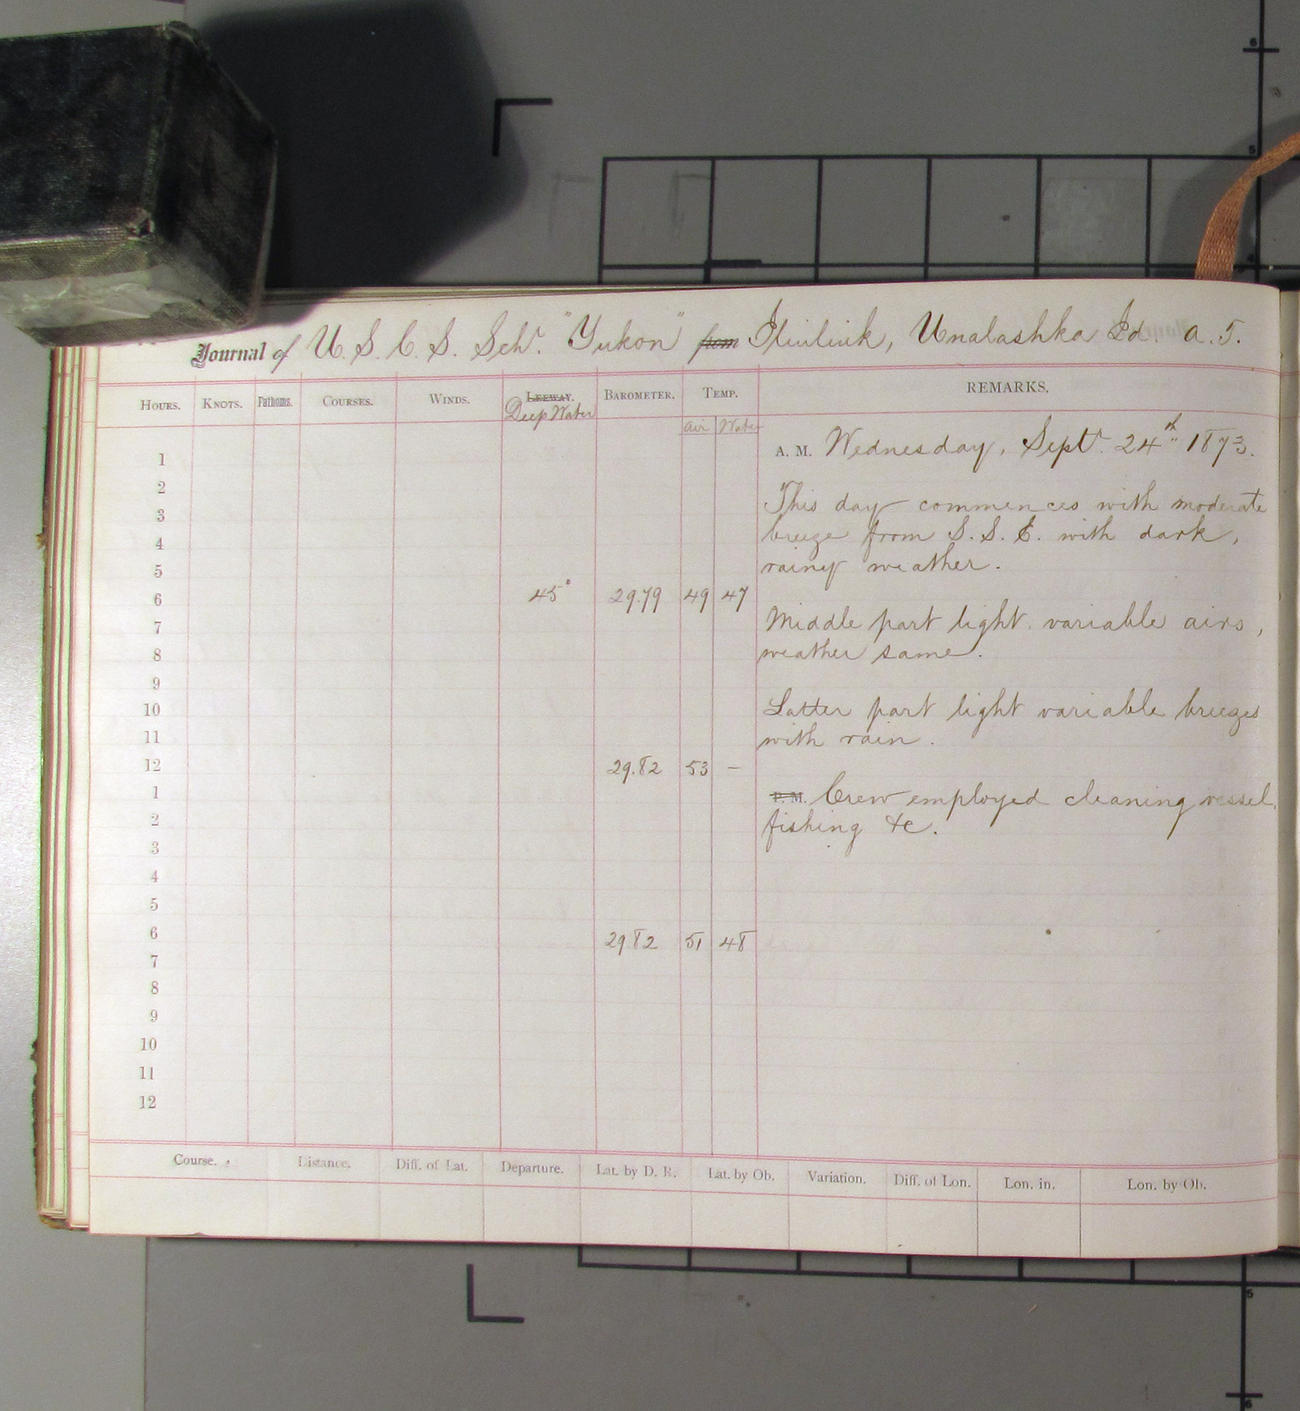 Journal of U. S. C. S. Schr. "Yukon" from Iliuliuk, Unalashka Id. A. T.
HOURS. KNOTS. Fathoms. COURSES. WINDS. LEEWAY. BAROMETER. TEMP. REMARKS.
Deep Water
Air Water
A. M. Wednesday, Sept. 24th 1873.
1
2
This day commences with moderate
3
breeze from S. S. E. with dark,
4
rainy weather.
5
6 45° 29.79 49 47
Middle part light variable airs,
7
weather same.
8
9
Latter part light variable breezes
10
with rain.
11
12 29.82 53 –
1 P. M. Crew employed cleaning vessel,
2 fishing &c.
3
4
5
6 29.82 51 48
7
8
9
10
11
12
Course. Distance. Diff. of Lat. Departure. Lat. by D. R. Lat. by Ob. Variation. Diff. of Lon. Lon. in. Lon. by Ob.
6
5
5
6